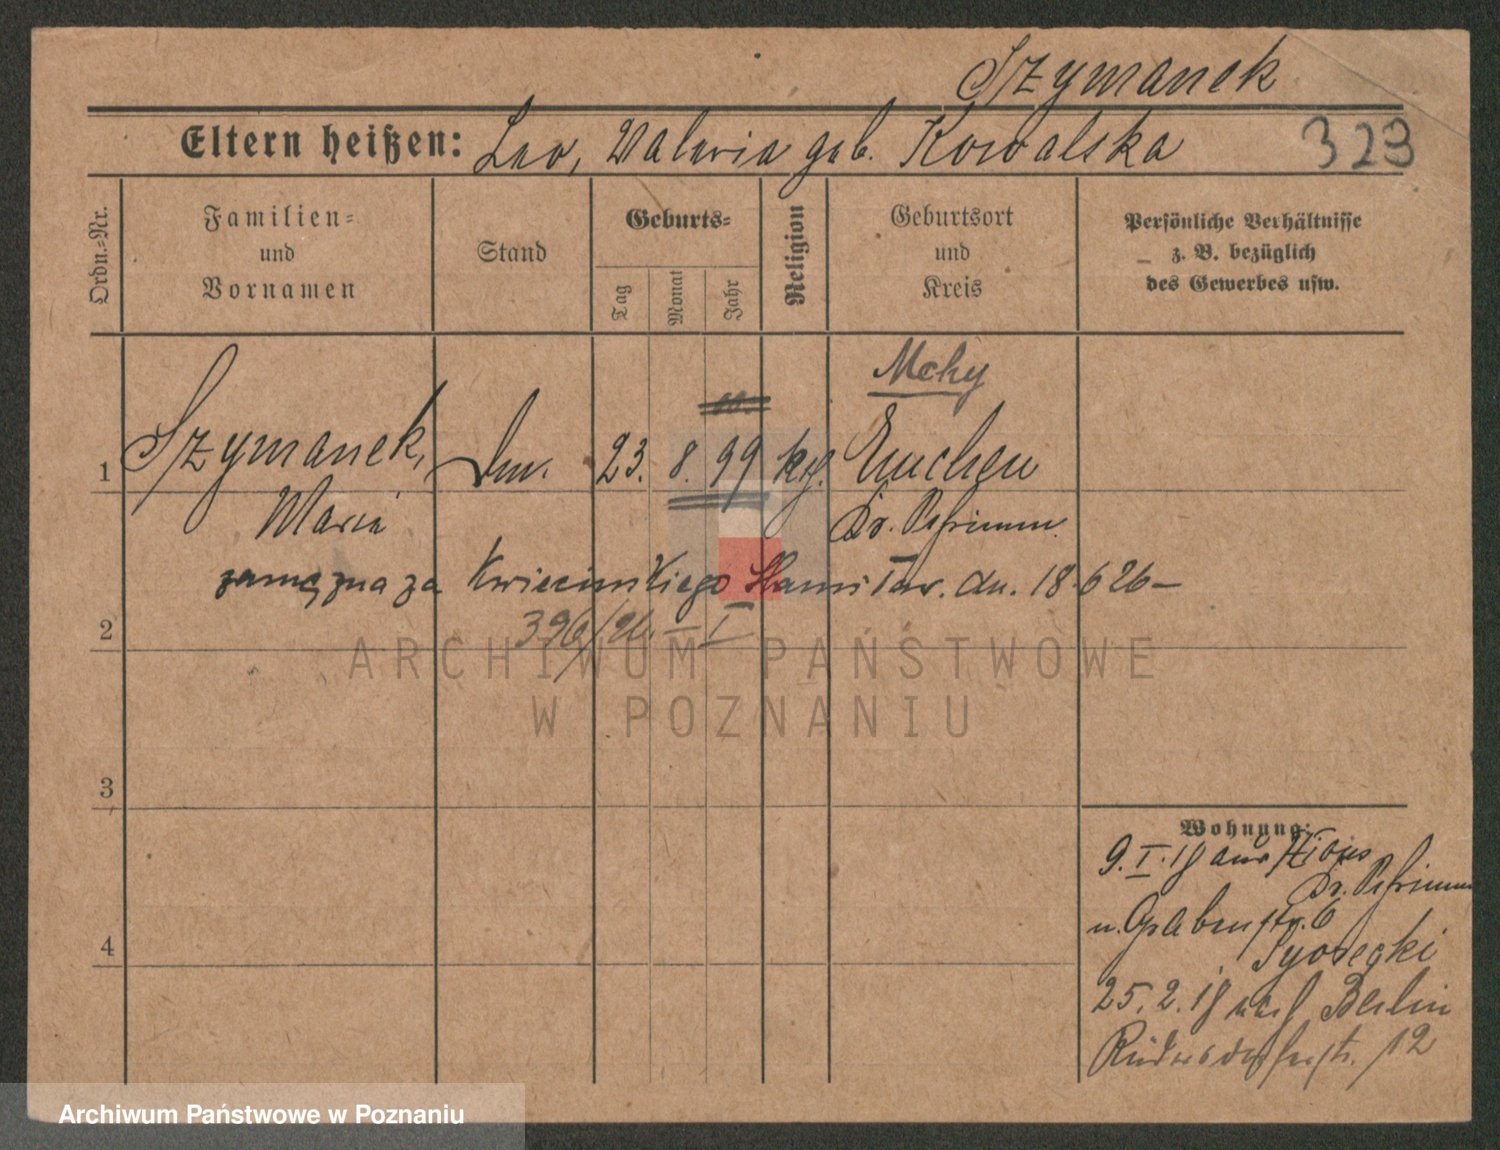 Szymanek
Eltern heißen: Leo, Valeria geb. Kowalska 323
Ordn.-Nr.
Familien- und Vornamen
Stand
Geburts-
Tag
Monat
Jahr
Religion
Geburtsort und Kreis
Persönliche Verhältnisse z. B. bezüglich des Gewerbes usw.
Mchy
1 Szymanek, 23. 8. 99 kth. Emchen
Maria Kr. Schrimm
zamężna za Kwiecinskiego Stanisław. dn. 18.6 26 –
2 396/26. – I
3
4
Wohnung:
9. I. 18 aus Xions
Kr. Schrimm
n. Grabenstr. 6
25. 2. 18 nach Berlin
Rüdersdorferstr. 12
ARCHIWUM PAŃSTWOWE
W POZNANIU
Archiwum Państwowe w Poznaniu